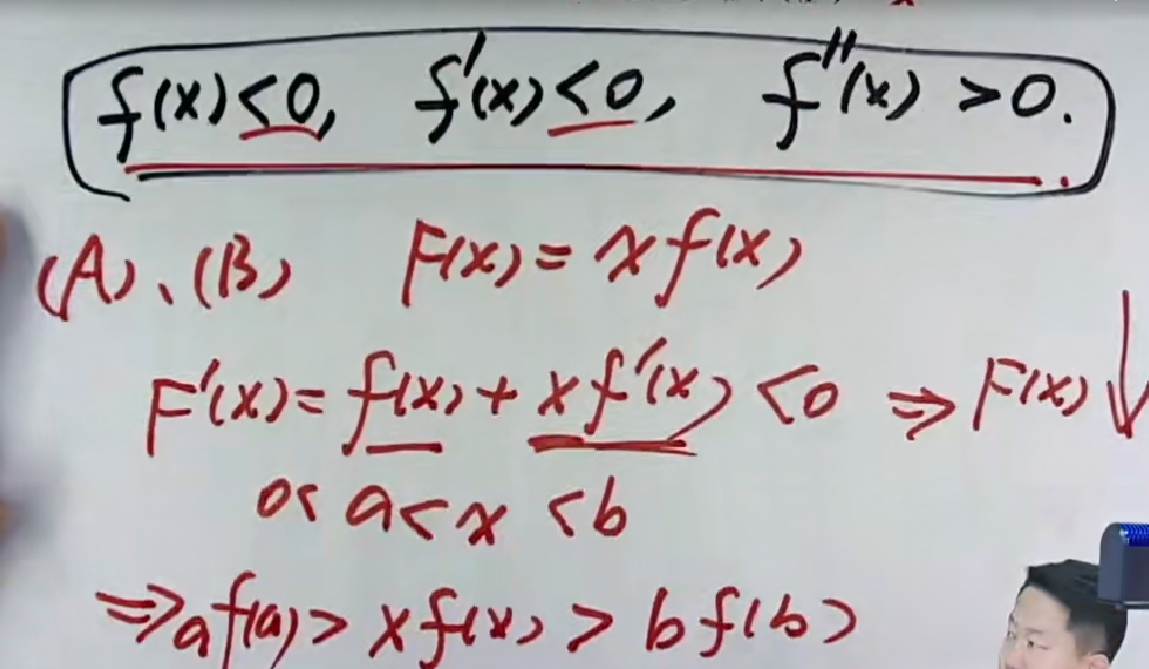 f(x)<0, f'(x)<0, f''(x)>0.
(A)、(B) F(x)=xf(x)
F'(x)=f(x)+xf'(x)<0 ⇒ F(x)↓
0<a<x<b
⇒af(a)>xf(x)>bf(b)